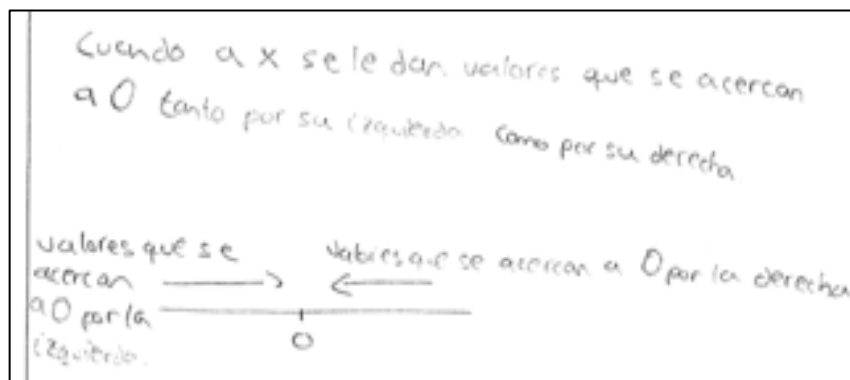 Cuando a x se le dan valores que se acercan
a 0 tanto por su izquierda como por su derecha
valores que se
acercan
a 0 por la
izquierda.
valores que se acercan a 0 por la derecha
0